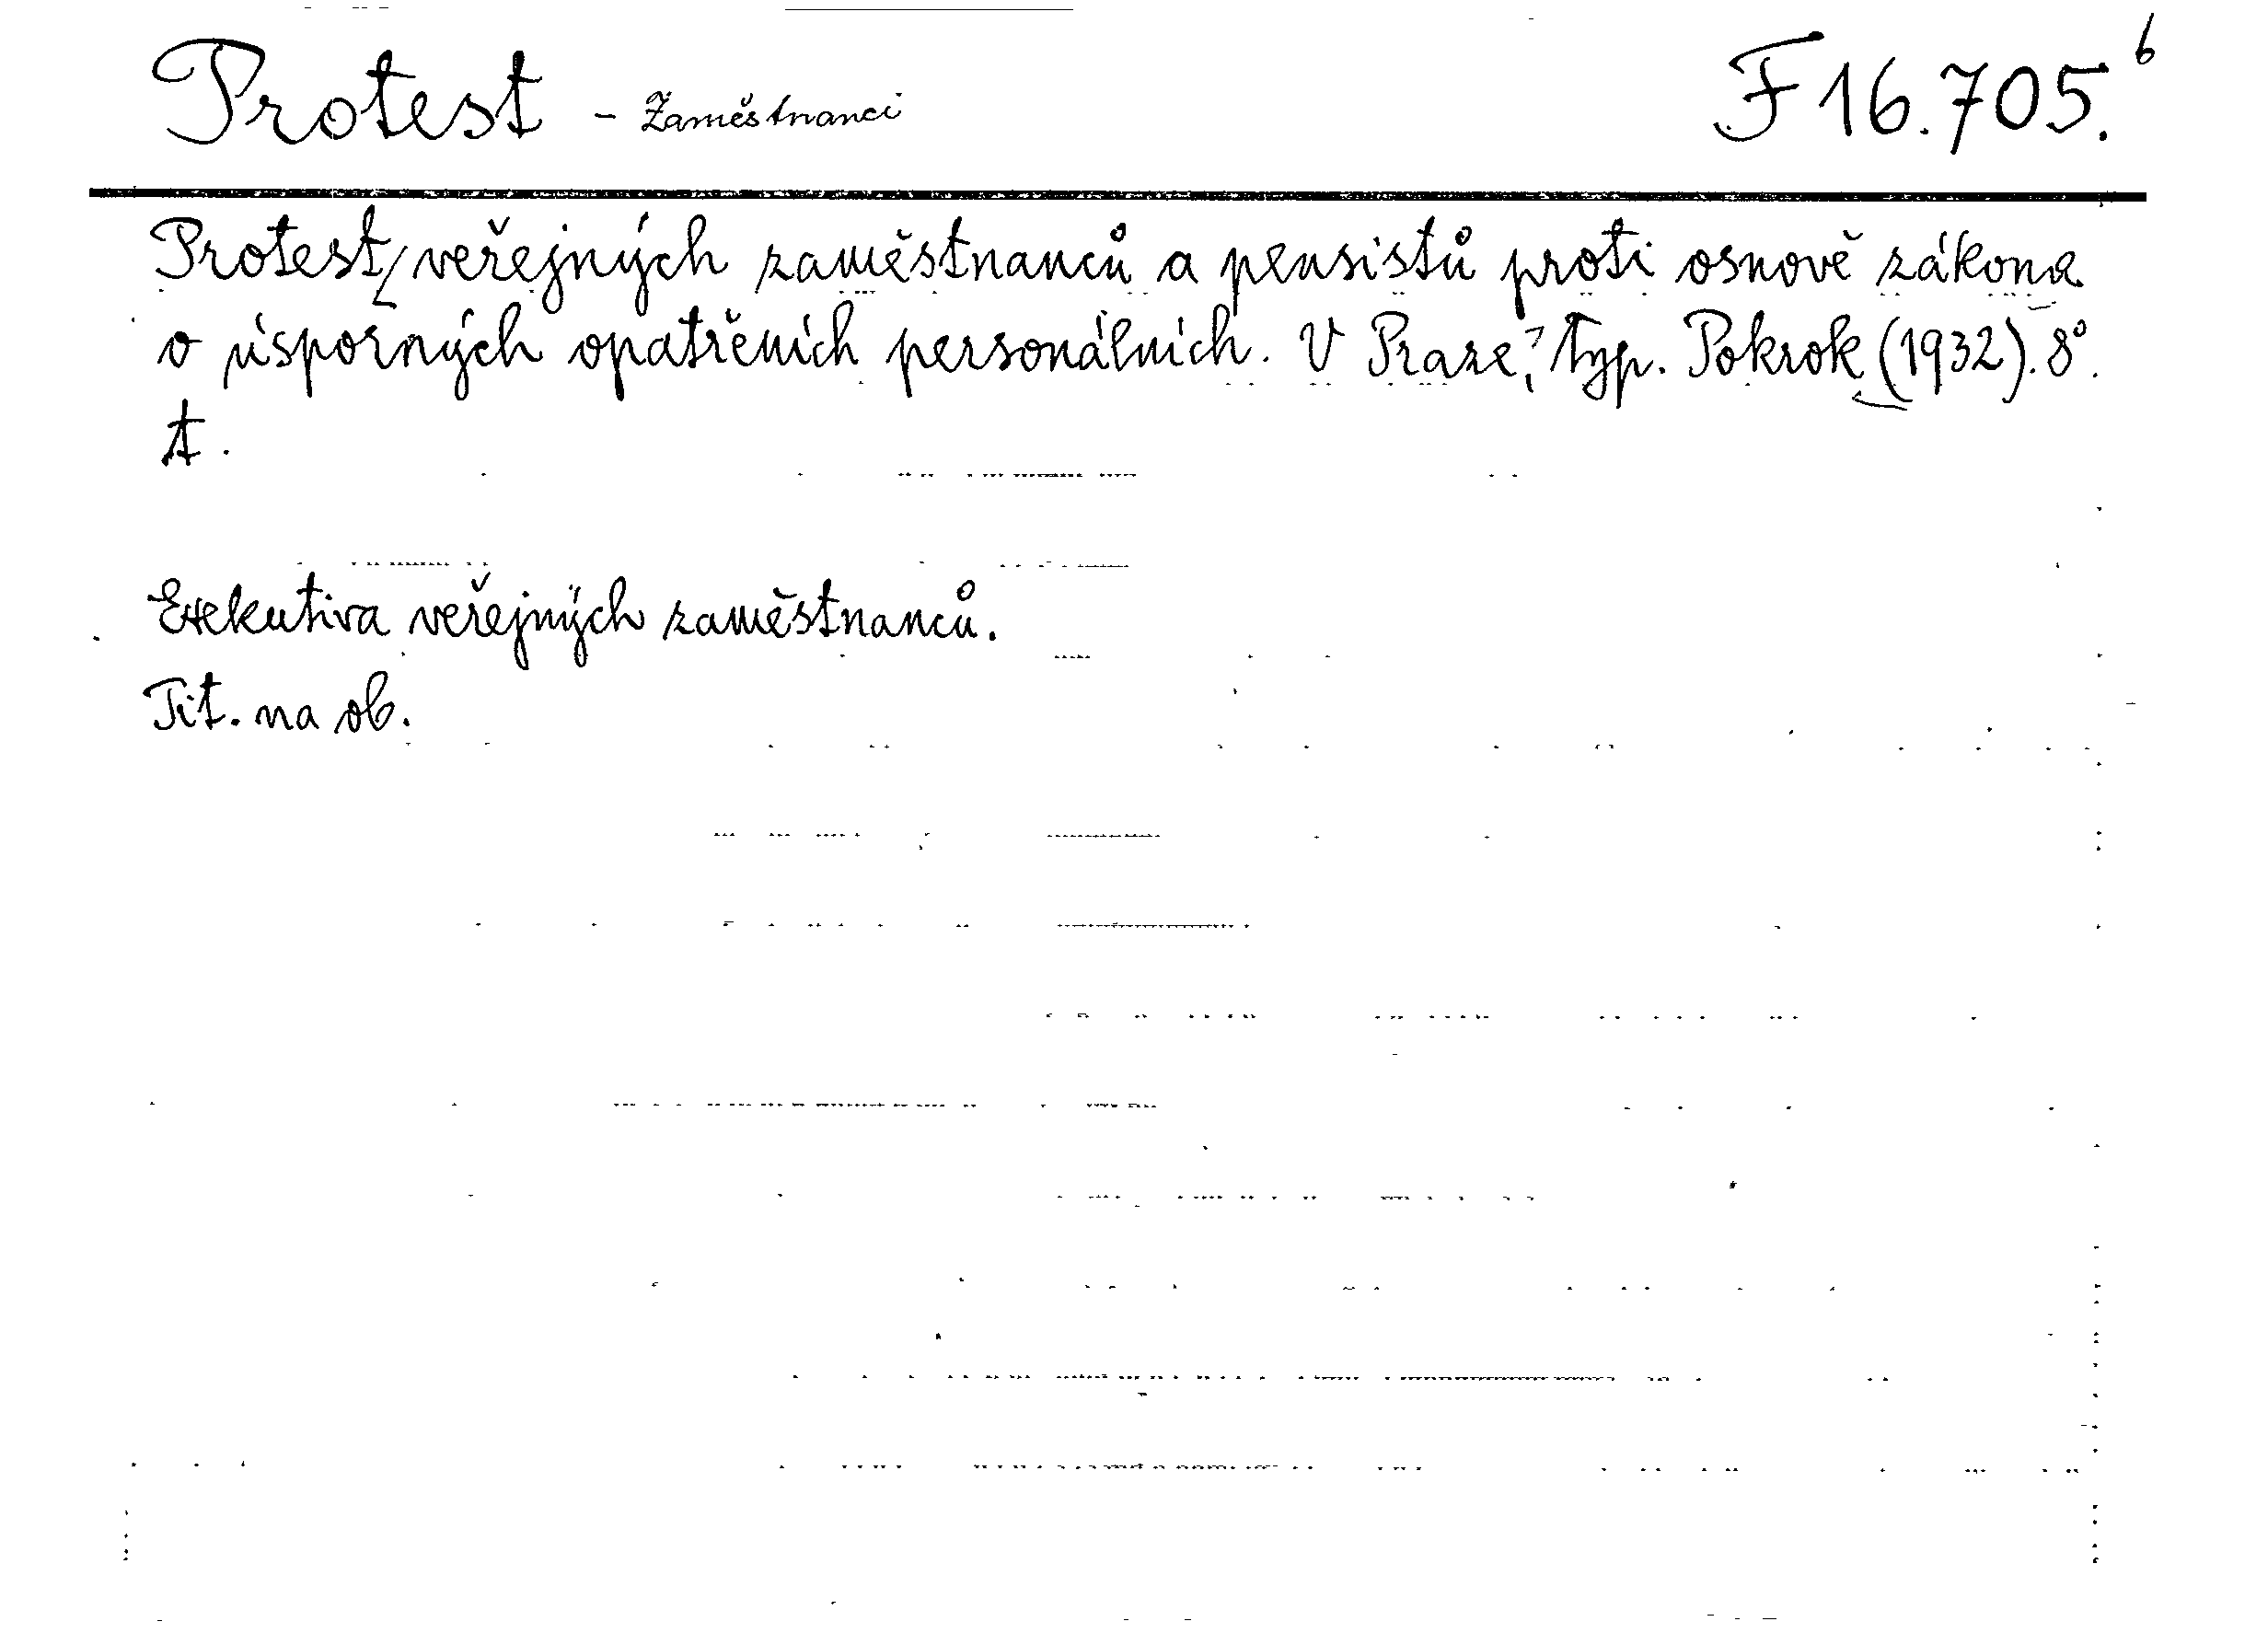 Protest - Zaměstnanci F 16.705.6
Protest veřejných zaměstnanců a pensistů proti osnově zákona
o úsporných opatřeních personálních. V Praze, typ. Pokrok (1932). 8°.
t.
Exekutiva veřejných zaměstnanců.
Tit. na ob.